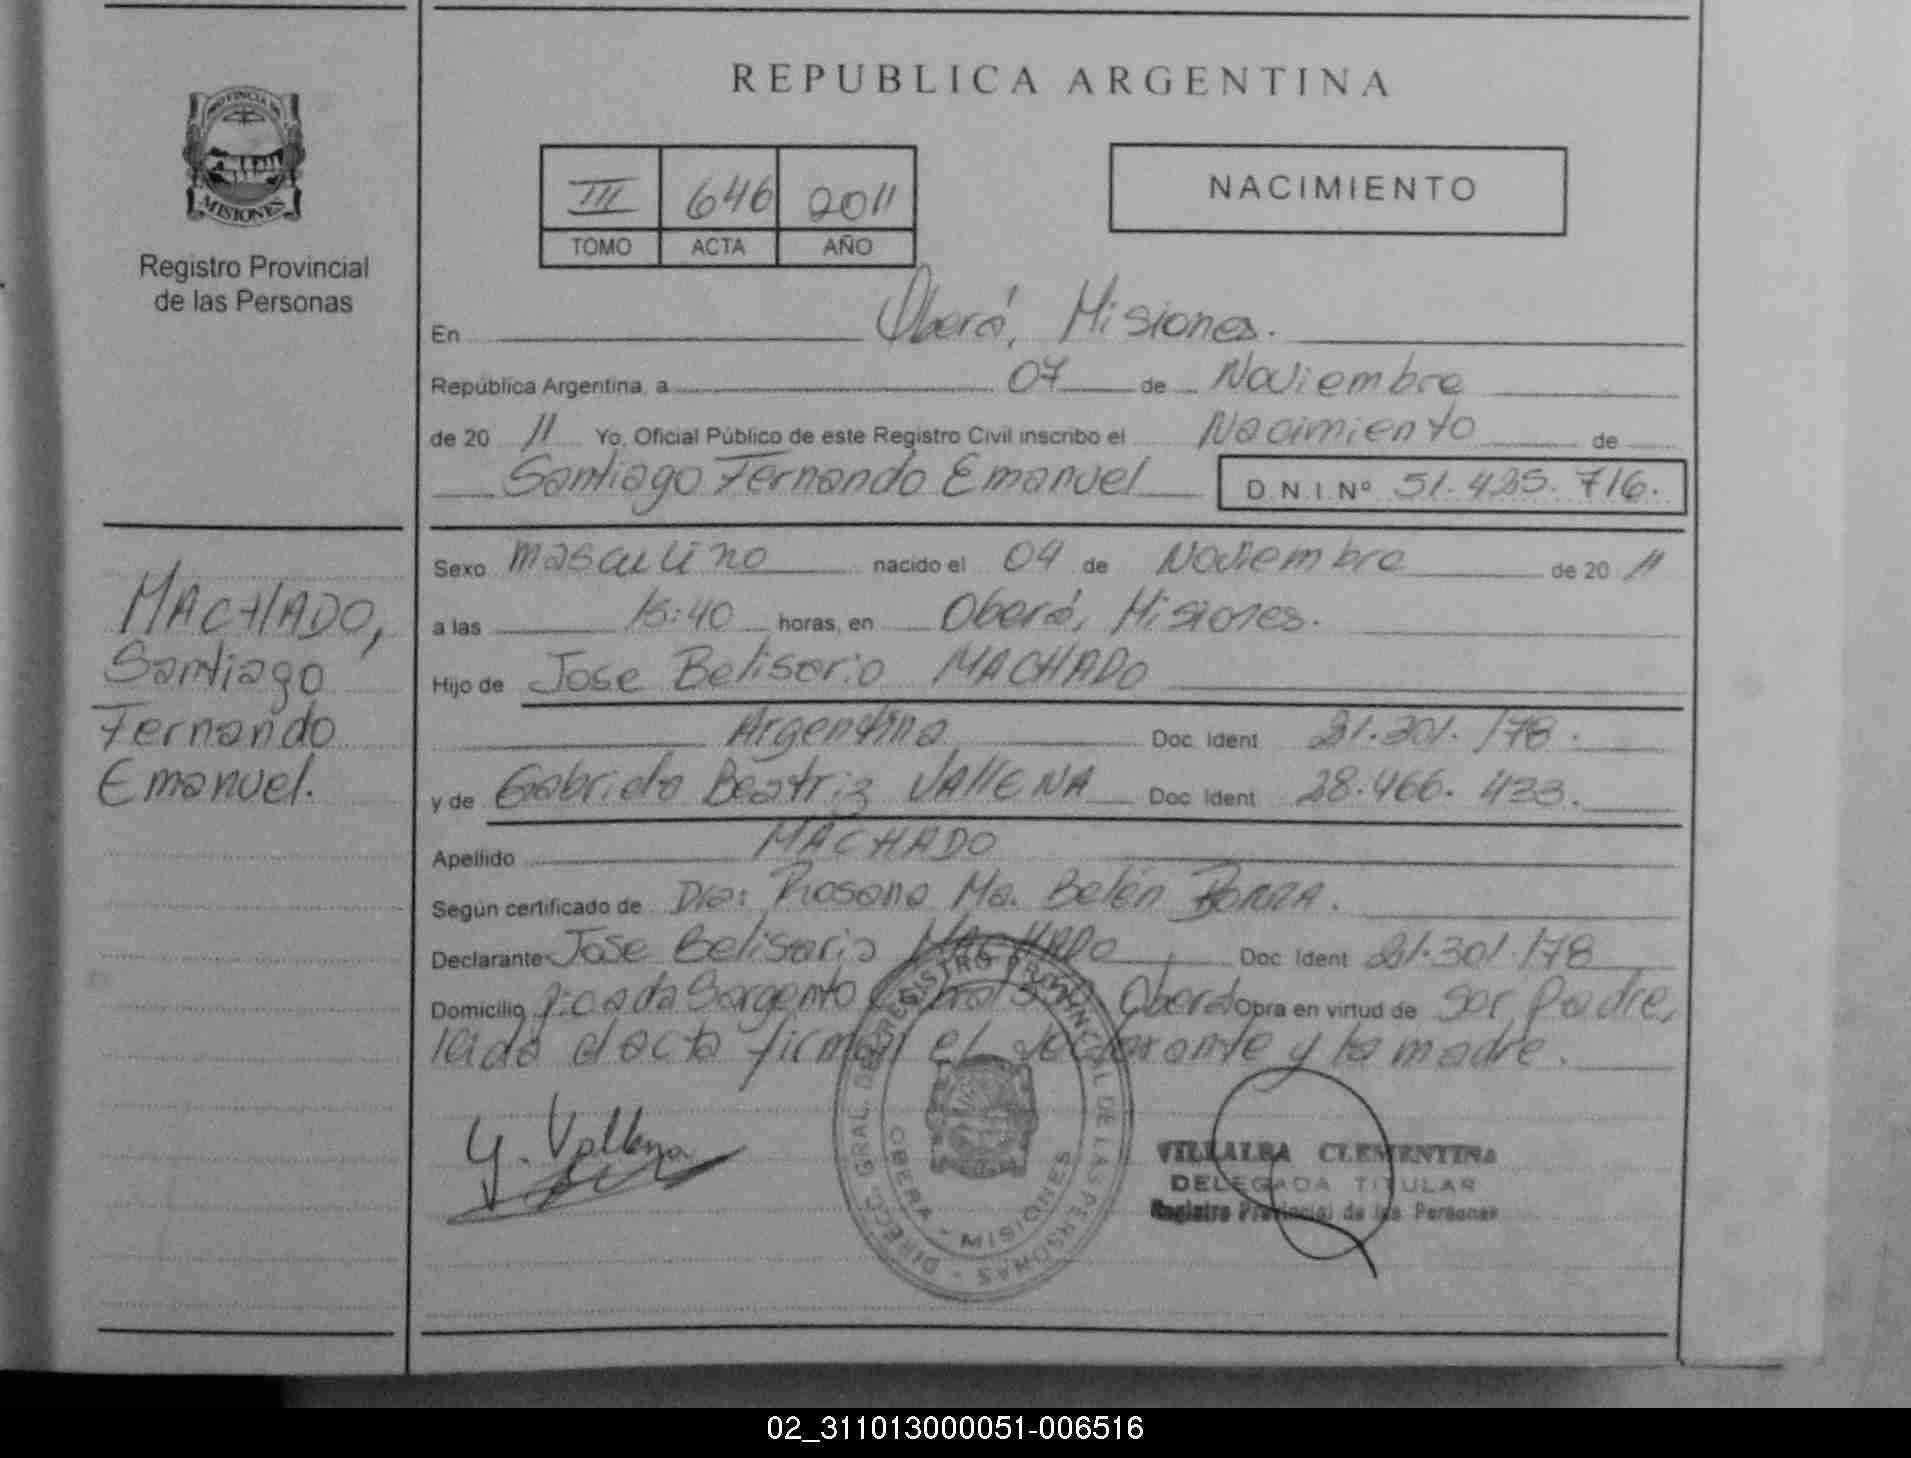 REPUBLICA ARGENTINA
PROVINCIA DE
MISIONES
Registro Provincial
de las Personas
III 646 2011
TOMO ACTA AÑO
NACIMIENTO
En Oberá, Misiones.
República Argentina, a 07 de Noviembre
de 20 11 Yo, Oficial Público de este Registro Civil inscribo el Nacimiento de
Santiago Fernando Emanuel D.N.I.Nº 51.425.716.
MACHADO,
Santiago
Fernando
Emanuel.
Sexo masculino nacido el 04 de Noviembre de 20 11
a las 15:40 horas, en Oberá, Misiones.
Hijo de Jose Belisario MACHADO
Argentina Doc. Ident 21.301.178.
y de Gabriela Beatriz VAllENA Doc. Ident 28.466.433.
Apellido MACHADO
Según certificado de Dra: Rosana Ma. Belén
Declarante Jose Belisario MACHADO Doc. Ident 21.301.178
Domicilio Picada Sargento Cabral Oberá Obra en virtud de ser Padre,
leida el acta firman el declarante y la madre.
G. Vallena
DIRECC. GRAL. DE REGISTRO PROVINCIAL DE LAS PERSONAS
OBERA - MISIONES
VILLALBA CLEMENTINA
DELEGADA TITULAR
Registro Provincial de las Personas
02_311013000051-006516